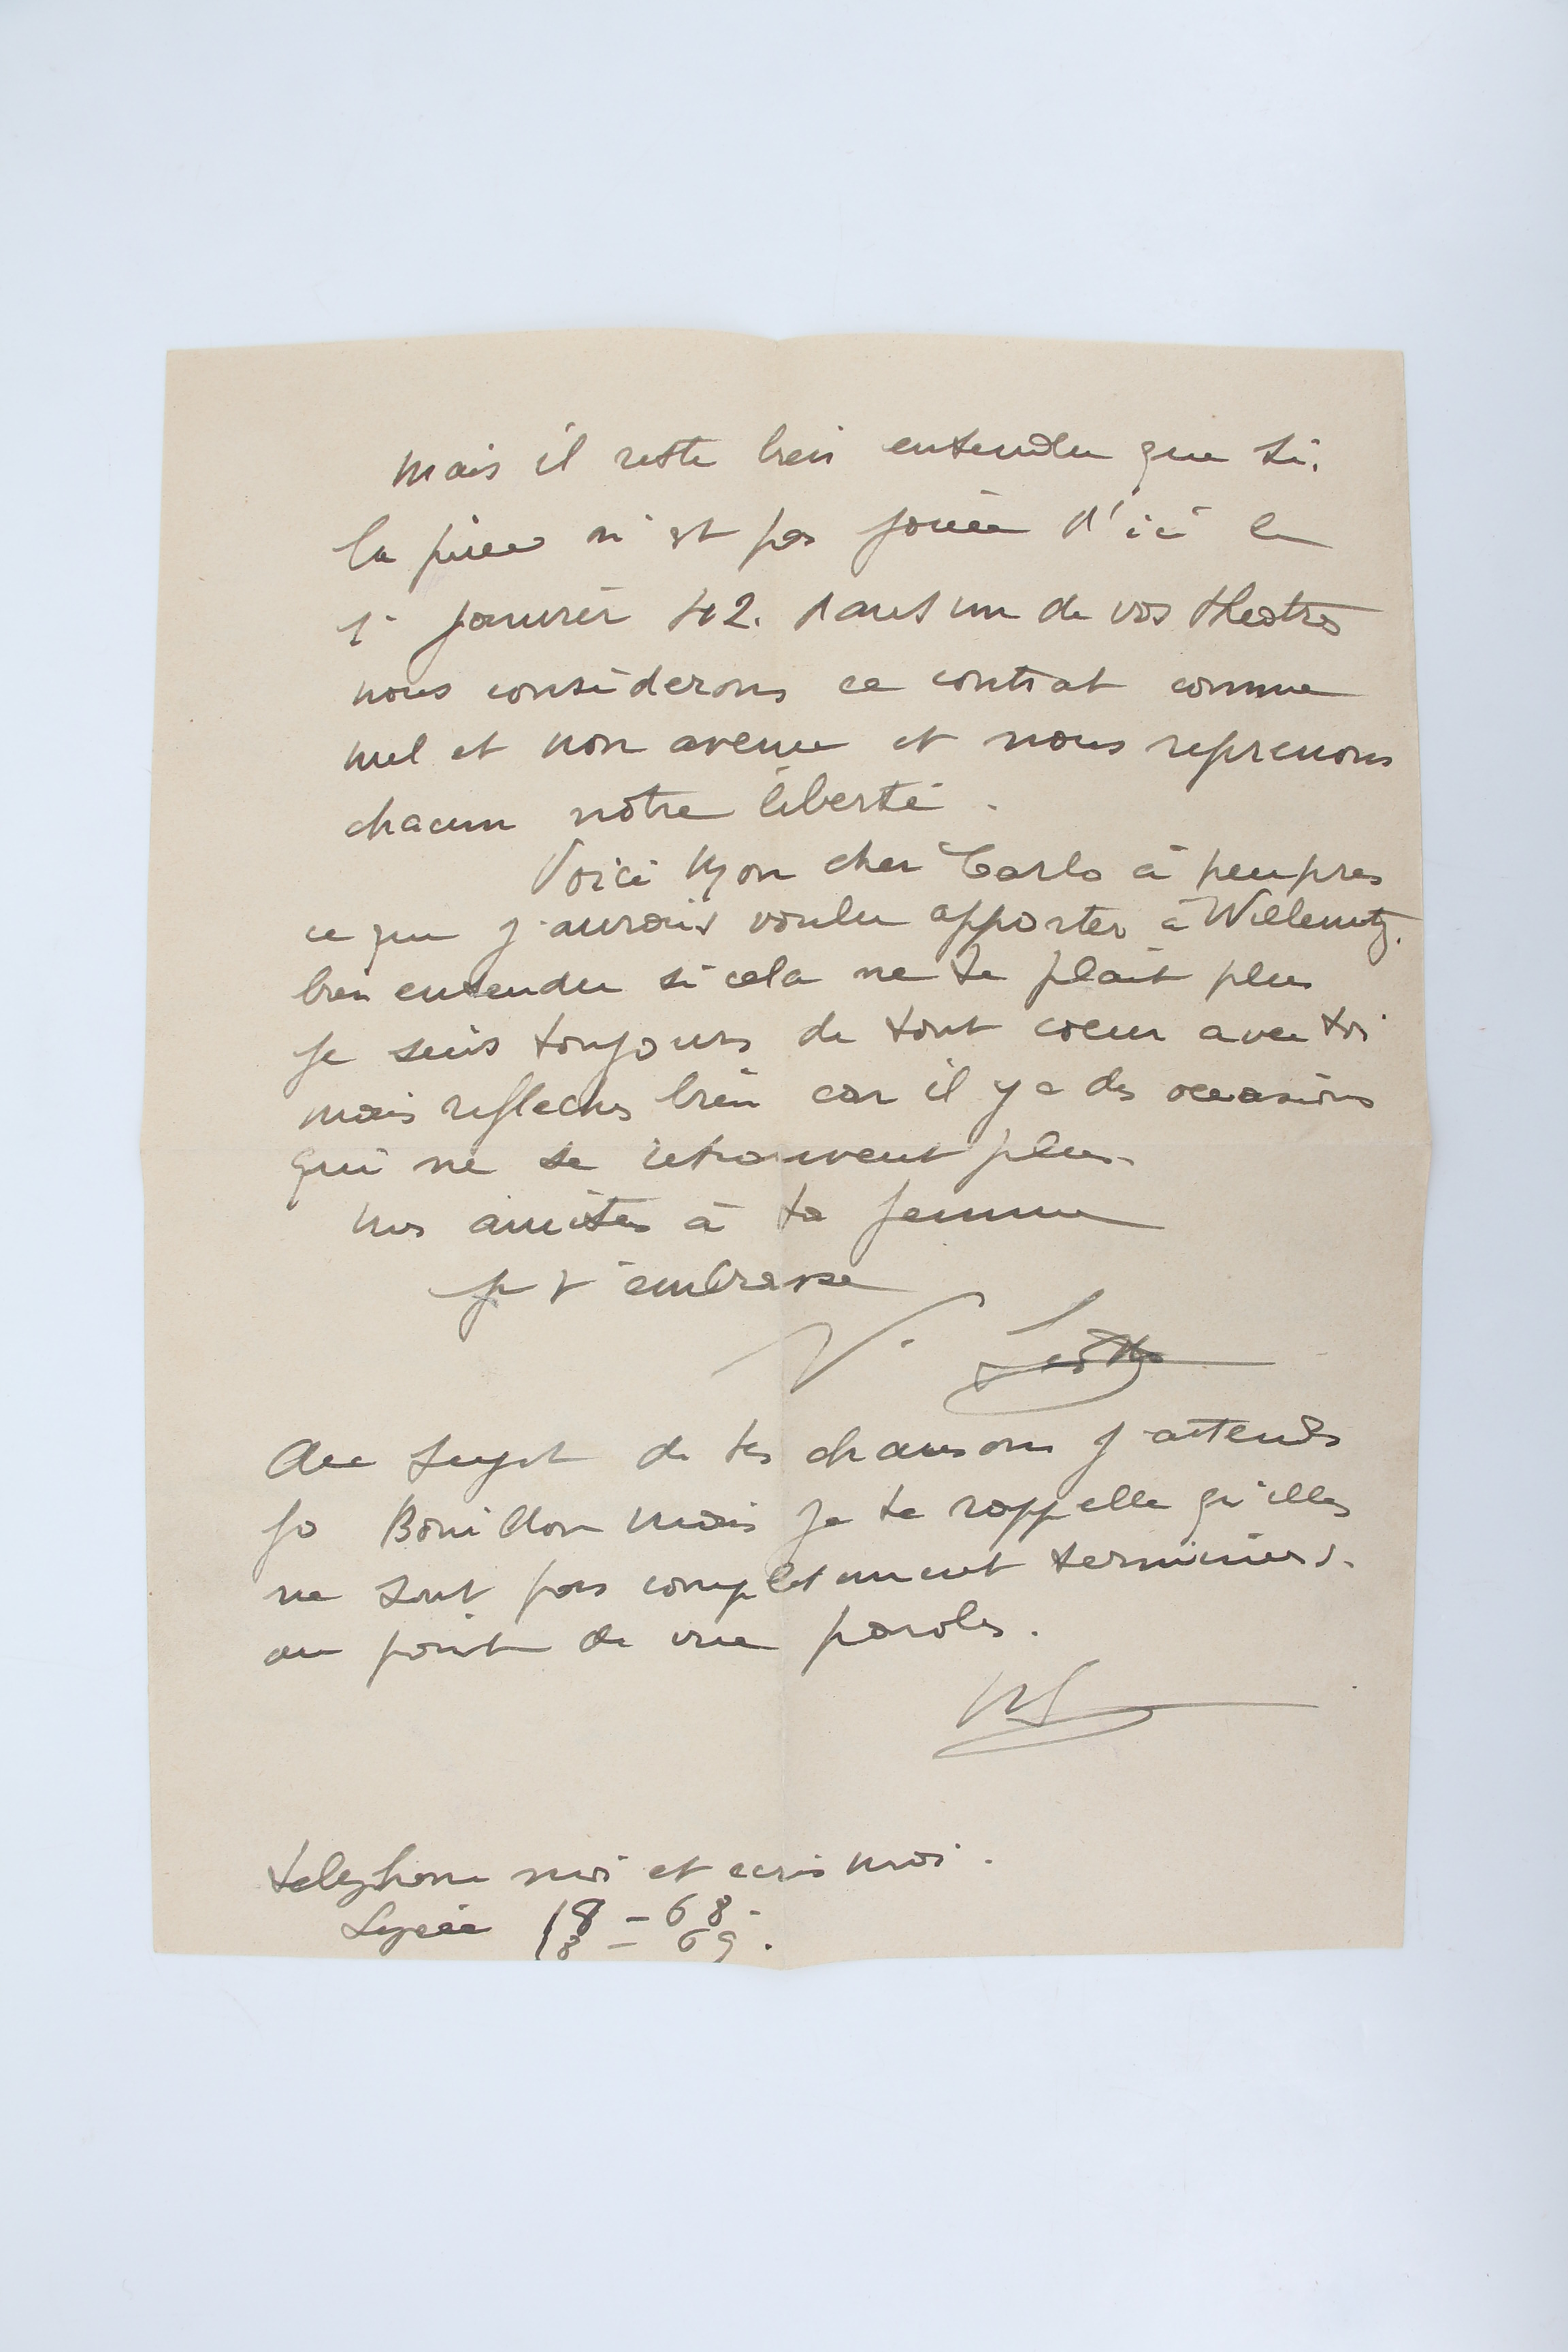 Mais il reste bien entendu que si.
la pièce n'est pas jouée d'ici le
1er janvier 42. dans un de vos theatres
nous considerons ce contrat comme
nul et non avenu et nous reprenons
chacun notre liberté.
Voici Mon cher Carlo à peu pres
ce que j'aurais voulu apporter à Willemetz.
bien entendu si cela ne te plait plus
je suis toujours de tout coeur avec toi
mais reflechis bien car il y a des occasions
qui ne se retrouvent plus.
Mes amitiés à ta femme
je t'embrasse
V. Scotto
Au sujet de tes chansons j'attends
Jo Bouillon mais je te rappelle qu'elles
ne sont pas completement terminées.
au point de vue paroles.
VS
telephone moi et ecris moi.
Lycée 18-68-
18-69.